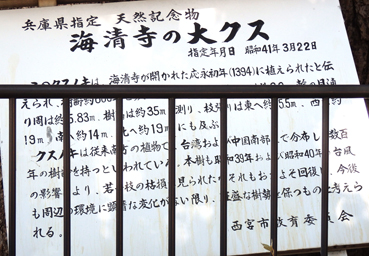 兵庫県指定 天然記念物
海清寺の大クス
指定年月日 昭和41年3月22日
このクスノキは、海清寺が開かれた応永初年(1394)に植えられたと伝
えられ、樹齢約600
り周は約5.83m、樹高は約35m 測り、枝張りは東へ 5.5m、西 約
19m 南へ約14m、北へ約19m にも及ぶ。
クスノキは従来南方の植物で、台湾および中国南部 分布し、数百
年の樹齢を持つといわれてい 。本樹も昭和39年および昭和40年 台風
の影響 より、若 枝の枯損 見られた それもおよそ回復 、今後
も周辺の環境に顕著な変化がない限り、 盛な樹勢を保つもの 考えら
れる。
西宮市教育委員会